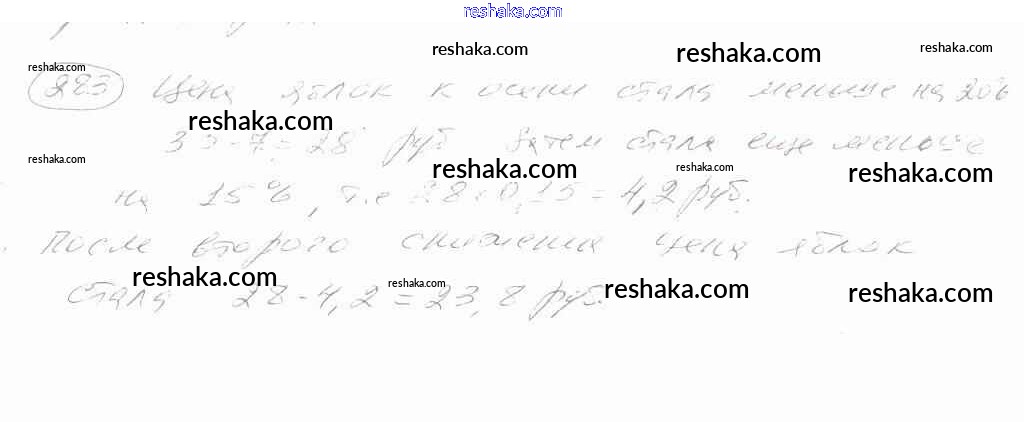 reshaka.com
reshaka.com reshaka.com reshaka.com
reshaka.com
283 Цена яблок к осени стала меньше на 20%
reshaka.com
35-7=28 руб Затем стала еще меньше
reshaka.com reshaka.com reshaka.com reshaka.com
на 15%, т.е 28·0,15=4,2 руб.
После второго снижения цена яблок
reshaka.com reshaka.com reshaka.com reshaka.com
стала 28-4,2=23,8 руб.